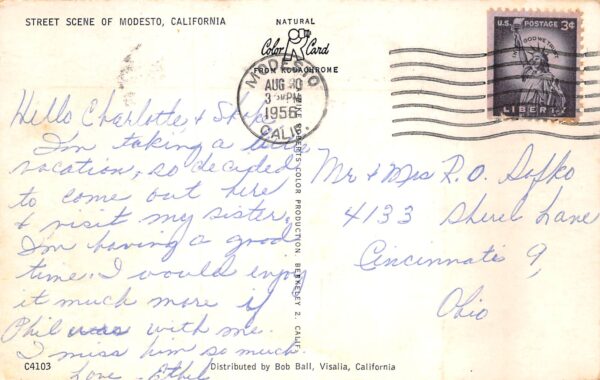 STREET SCENE OF MODESTO, CALIFORNIA
NATURAL
Color Card
FROM KODACHROME
MODESTO
AUG 30
3 PM
1956
CALIF.
U.S. POSTAGE 3¢
IN GOD WE TRUST
LIBERTY
Hello Charlotte &
I'm taking a
vacation, so decided
to come out here
& visit my sister.
I'm having a good
time. I would enjoy
it much more if
Phil was with me.
I miss him so much.
Love - Ethel
MIKE ROBERTS COLOR PRODUCTION BERKELEY 2, CALIF.
Mr & Mrs R. O. Sofko
4133 Sherel Lane
Cincinnati 9,
Ohio
C4103
Distributed by Bob Ball, Visalia, California